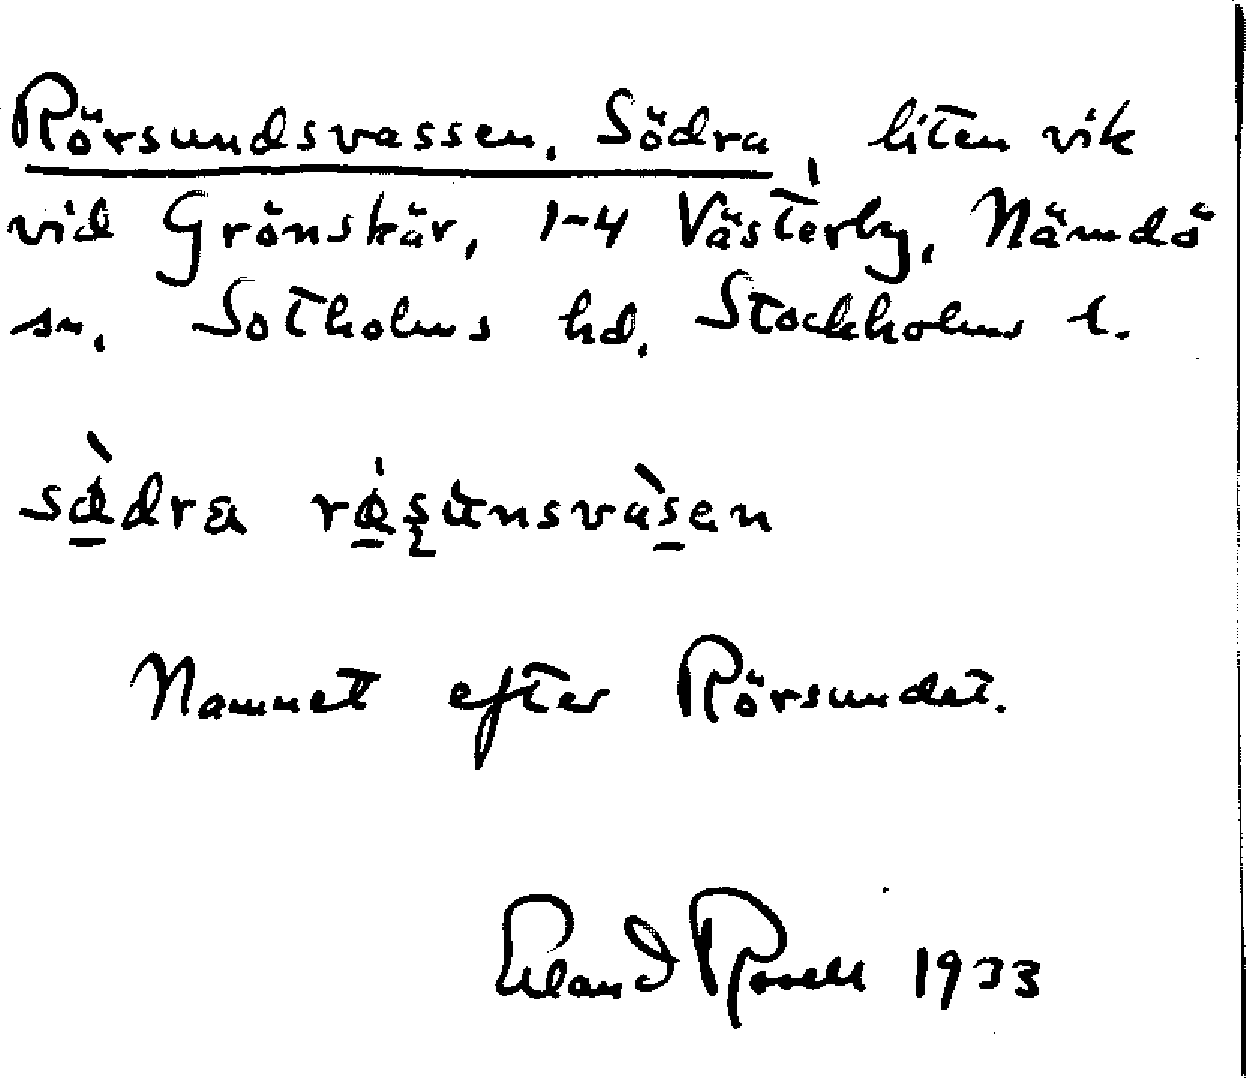 Rörsundsvassen, Södra, liten vik
vid Grönskär, 1-4 Västerby, Nämdö
sn, Sotholms hd, Stockholms l.
södra
Namnet efter Rörsundet.
Erland Rosell 1933